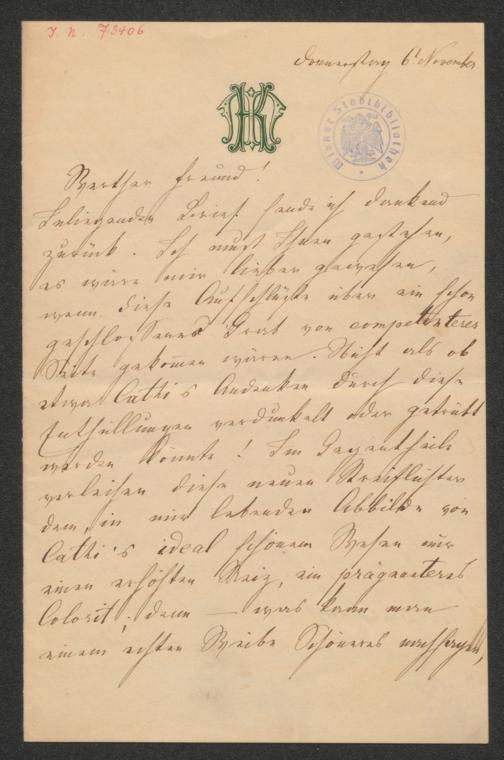 J. N. 73406
Donnerstag 6t November
HK
Wiener Stadtbibliothek
Werther Freund!
Inliegenden Brief sende ich dankend
zurück. Ich muß Ihnen gestehen,
es wäre mir lieber gewesen,
wenn diese Aufschlüsse über ein schon
geschlossenes Grab von competenterer
Seite gekommen wären. Nicht als ob
etwa Cathi's Andenken durch diese
Enthüllungen verdunkelt oder getrübt
werden könnte! Im Gegentheile
verleihen diese neuen Streiflichter
dem, in mir lebenden Abbilde von
Cathi's ideal schönem Wesen nur
einen erhöhten Reiz, ein prägnanteres
Colorit; denn — was kann man
einem echten Weibe Schöneres nachsagen,